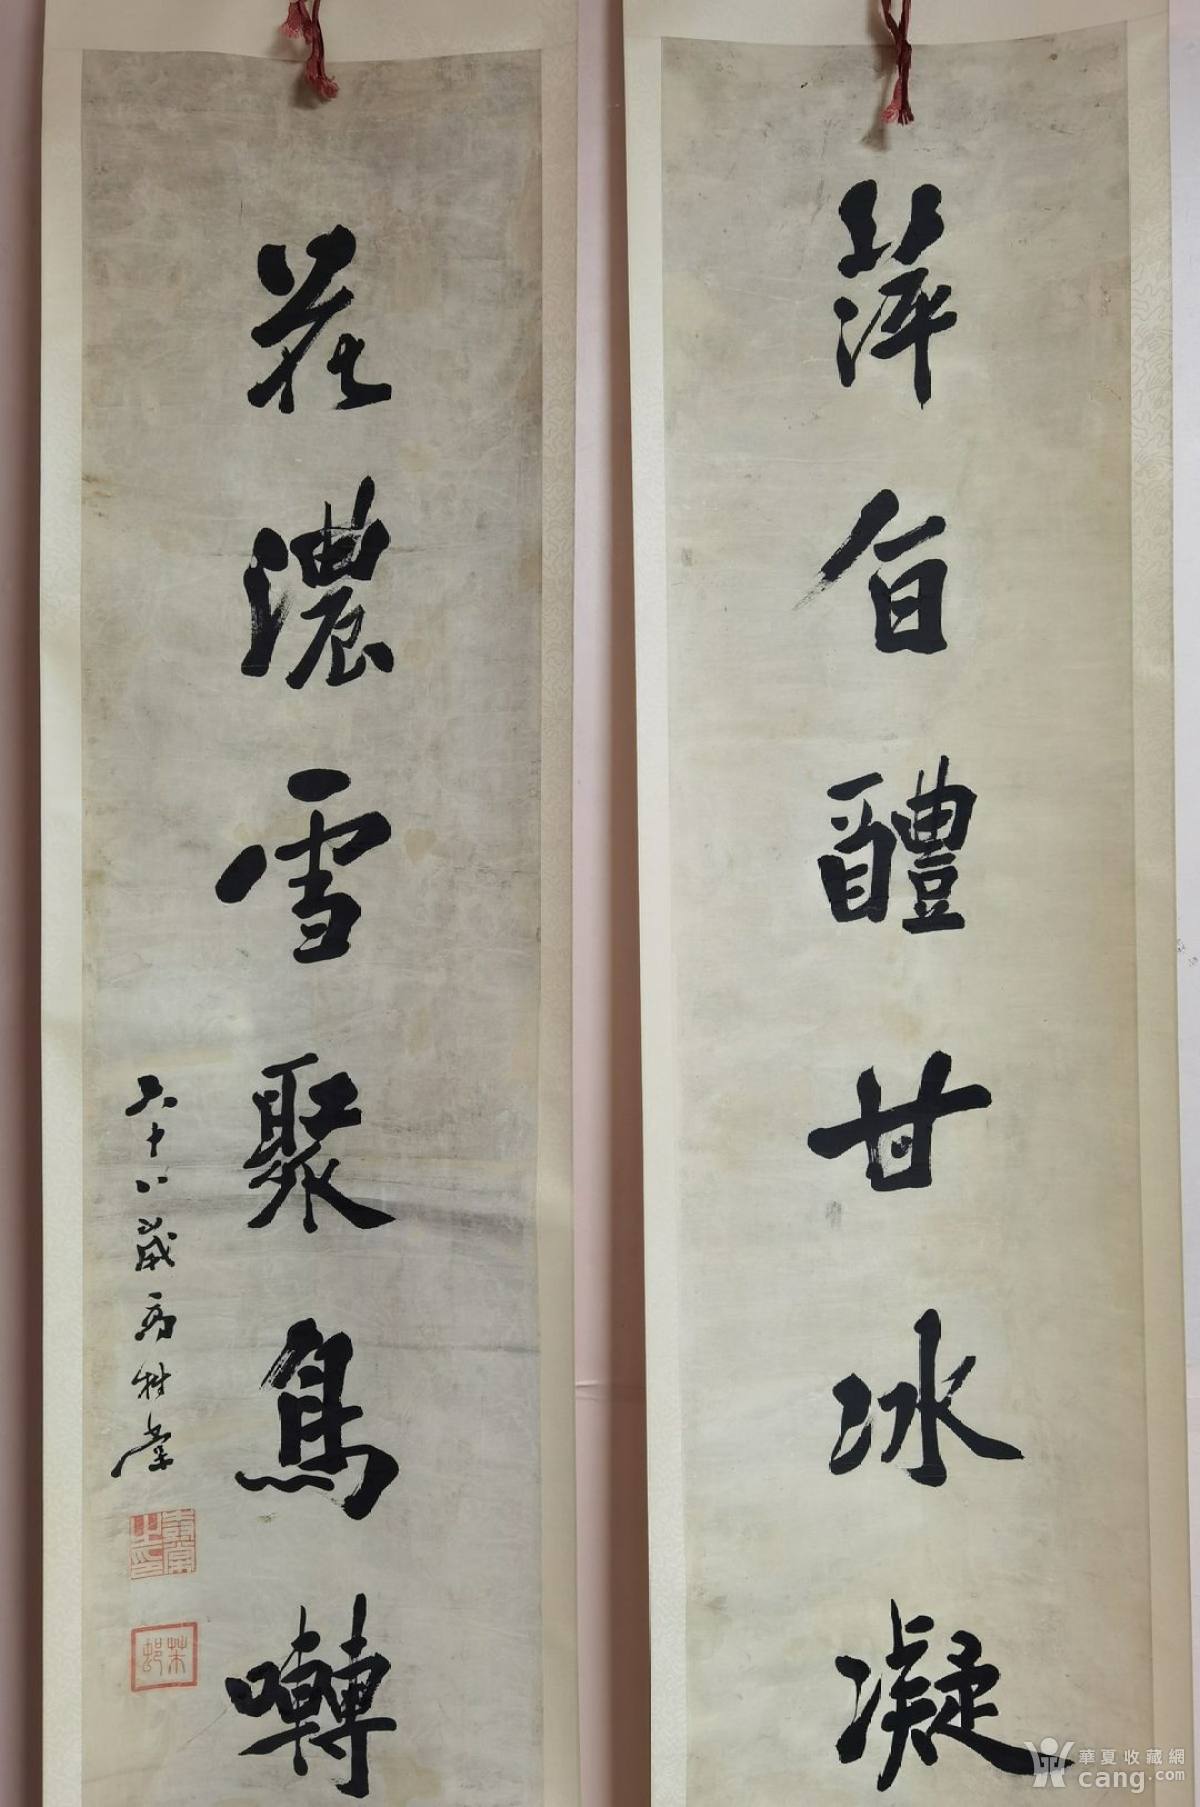 萍白醴甘冰凝
花濃雪聚鳥囀
六十八歲
華夏收藏網
cang.com